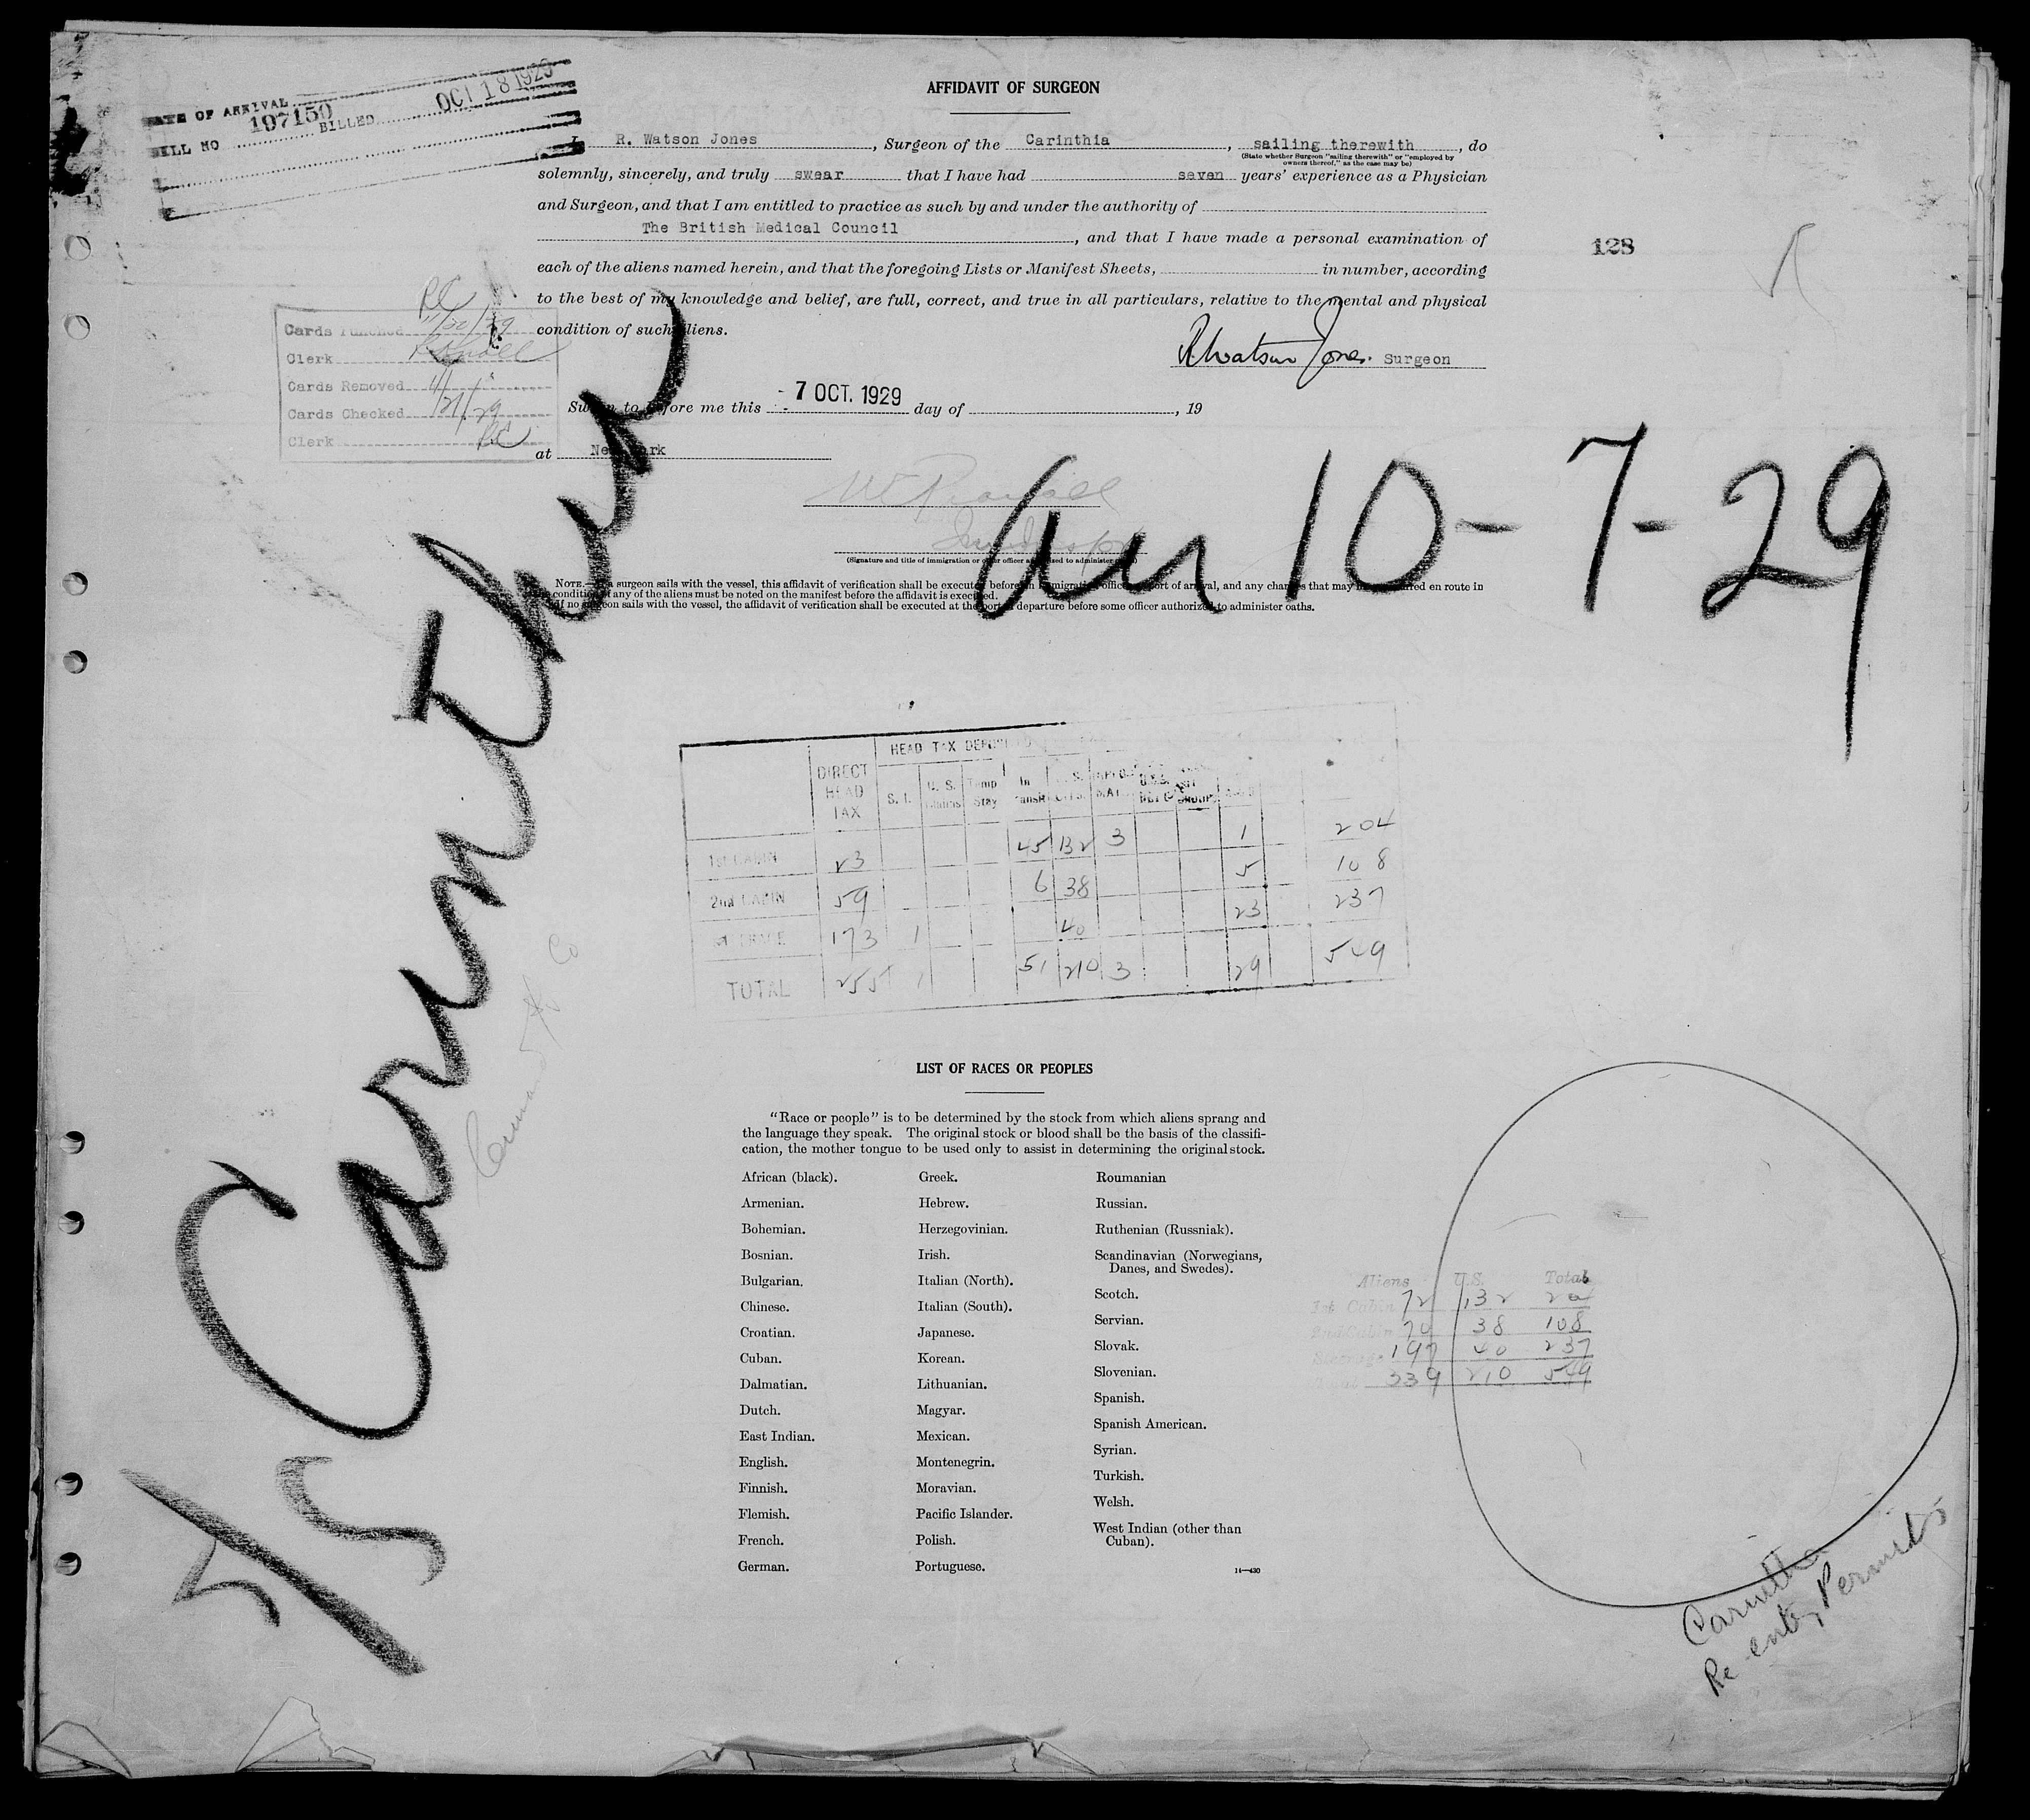 DATE OF ARRIVAL
197150 OCT 18 1929
BILL NO BILLED
AFFIDAVIT OF SURGEON
I, R. Watson Jones, Surgeon of the Carinthia, sailing therewith, do
(State whether Surgeon "sailing therewith" or "employed by
owners thereof," as the case may be)
solemnly, sincerely, and truly swear that I have had seven years' experience as a Physician
and Surgeon, and that I am entitled to practice as such by and under the authority of
The British Medical Council, and that I have made a personal examination of
each of the aliens named herein, and that the foregoing Lists or Manifest Sheets, in number, according
to the best of my knowledge and belief, are full, correct, and true in all particulars, relative to the mental and physical
condition of such aliens.
128
RWatson Jones. Surgeon
Cards Punched 11/20/29
Clerk
Cards Removed 11/
Cards Checked 21/29
Clerk
Sworn to before me this 7 OCT. 1929 day of , 19
at New York
(Signature and title of immigration or other officer authorized to administer oaths)
NOTE.—If a surgeon sails with the vessel, this affidavit of verification shall be executed before an immigration officer at port of arrival, and any changes that may have occurred en route in
the condition of any of the aliens must be noted on the manifest before the affidavit is executed.
If no surgeon sails with the vessel, the affidavit of verification shall be executed at the port of departure before some officer authorized to administer oaths.
Arr 10-7-29
S/S Carinthia
Cunard
HEAD TAX DEPOSITED
DIRECT HEAD TAX S. I. U. S. Temp Stay In Transit
1st CABIN 23 45 132 3 1 204
2nd CABIN 59 6 38 5 108
STEERAGE 173 1 40 23 237
TOTAL 255 1 51 210 3 29 549
LIST OF RACES OR PEOPLES
"Race or people" is to be determined by the stock from which aliens sprang and
the language they speak. The original stock or blood shall be the basis of the classifi-
cation, the mother tongue to be used only to assist in determining the original stock.
African (black).
Armenian.
Bohemian.
Bosnian.
Bulgarian.
Chinese.
Croatian.
Cuban.
Dalmatian.
Dutch.
East Indian.
English.
Finnish.
Flemish.
French.
German.
Greek.
Hebrew.
Herzegovinian.
Irish.
Italian (North).
Italian (South).
Japanese.
Korean.
Lithuanian.
Magyar.
Mexican.
Montenegrin.
Moravian.
Pacific Islander.
Polish.
Portuguese.
Roumanian
Russian.
Ruthenian (Russniak).
Scandinavian (Norwegians,
Danes, and Swedes).
Scotch.
Servian.
Slovak.
Slovenian.
Spanish.
Spanish American.
Syrian.
Turkish.
Welsh.
West Indian (other than
Cuban).
14—430
Aliens U.S. Total
1st Cabin 72 132 204
2nd Cabin 70 38 108
Steerage 197 40 237
Total 339 210 549
Carinthia
Re entry Permits